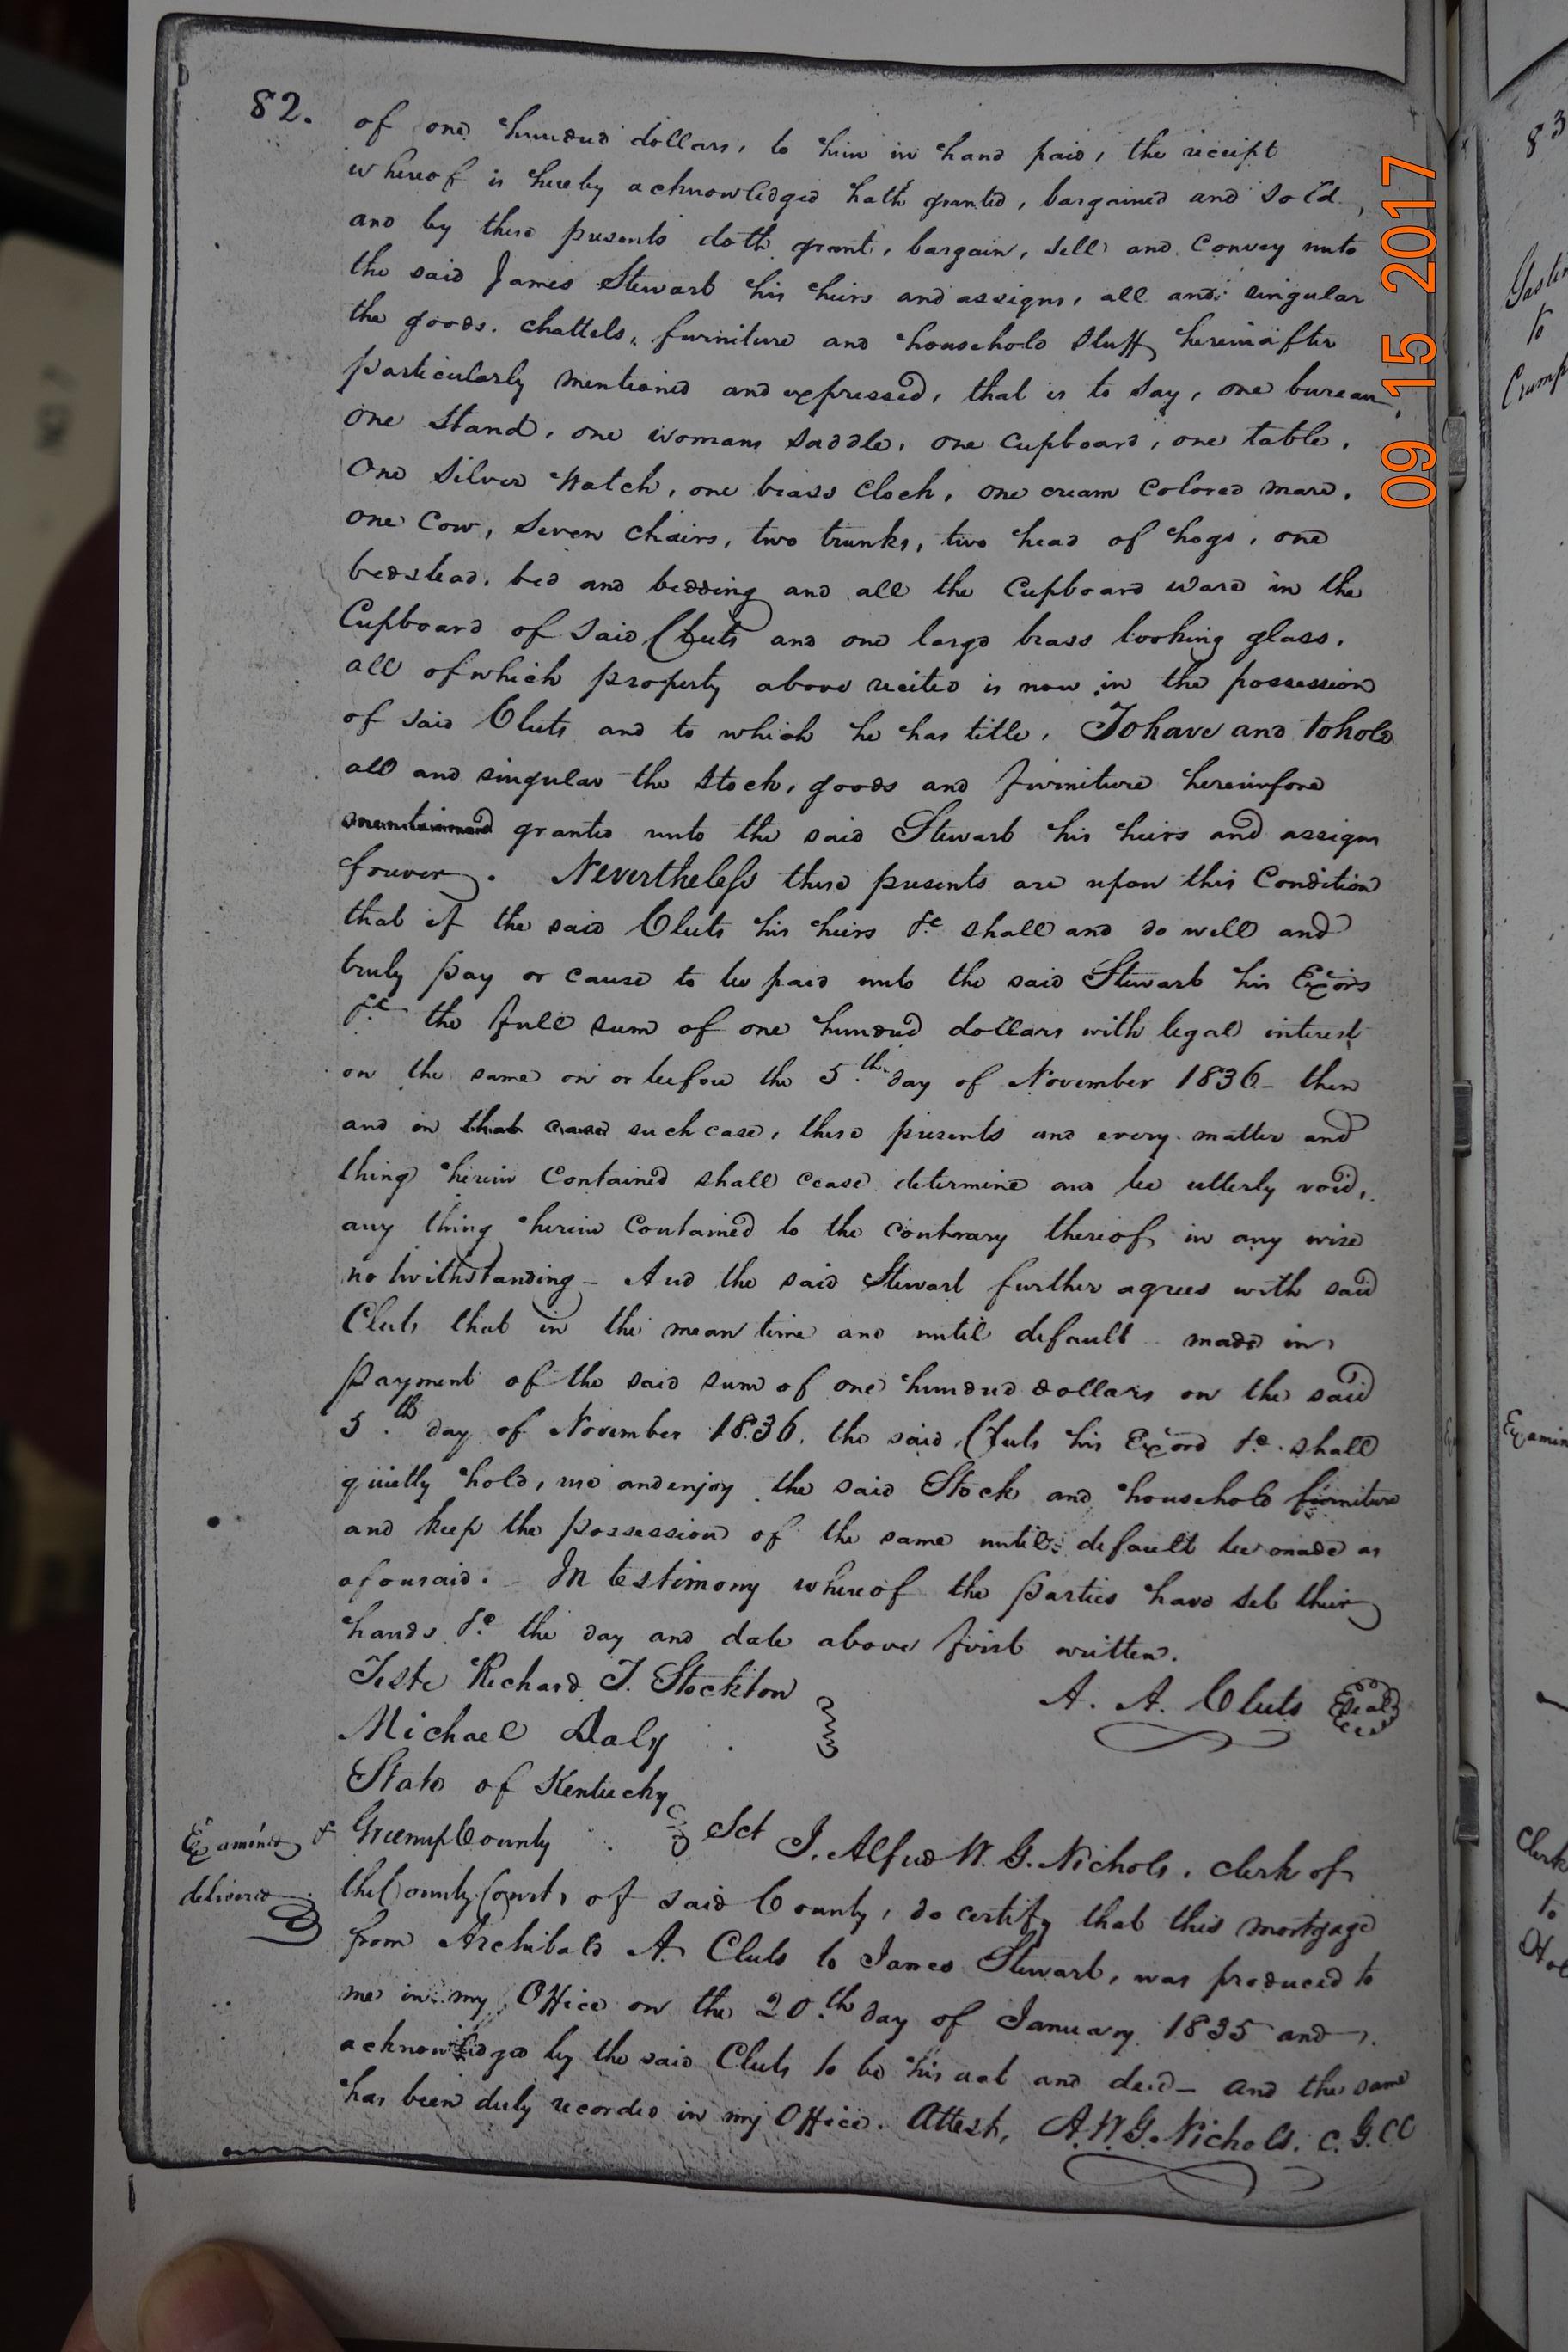 82.
of one hundred dollars, to him in hand paid, the receipt
whereof is hereby acknowledged hath granted, bargained and sold,
and by these presents doth grant, bargain, sell and convey unto
the said James Stewart his heirs and assigns, all and singular
the goods, chattels, furniture and household stuff hereinafter
particularly mentioned and expressed, that is to say, one bureau,
one stand, one womans saddle, one cupboard, one table,
One silver Watch, one brass clock, one cream colored mare,
one cow, seven chairs, two trunks, two head of hogs, one
bedstead, bed and bedding and all the cupboard ware in the
Cupboard of said Cluts and one large brass looking glass,
all of which property above recited is now in the possession
of said Cluts and to which he has title, To have and to hold
all and singular the stock, goods and furniture hereinfore
granted unto the said Stewart his heirs and assigns
forever. Nevertheless these presents are upon this Condition
that if the said Cluts his heirs &c shall and do well and
truly pay or cause to be paid unto the said Stewart his Exors
&c the full sum of one hundred dollars with legal interest
on the same on or before the 5th day of November 1836 - then
and in that case such case, these presents and every matter and
thing herein contained shall cease determine and be utterly void,
any thing herein contained to the contrary thereof in any wise
notwithstanding - And the said Stewart further agrees with said
Cluts that in the mean time and until default made in
payment of the said sum of one hundred dollars on the said
5th day of November 1836. the said Cluts his Exors &c. shall
quietly hold, use and enjoy the said Stock and household furniture
and keep the possession of the same until default be made as
aforesaid. - In testimony whereof the parties have set their
hands &c the day and date above first written.
Teste Richard T. Stockton
A. A. Cluts Seal
Michael Daly
State of Kentucky
Greenup County Sct I, Alfred W. G. Nichols, clerk of
Examined &
delivered
the County Court, of said County, do certify that this mortgage
from Archibald A. Cluts to James Stewart, was produced to
me in my Office on the 20th day of January 1835 and
acknowledged by the said Cluts to be his act and deed - and the same
has been duly recorded in my Office. Attest, A.W.G. Nichols. C.G.CC
09 15 2017
83
to
Crump
Examin
Clerk
to